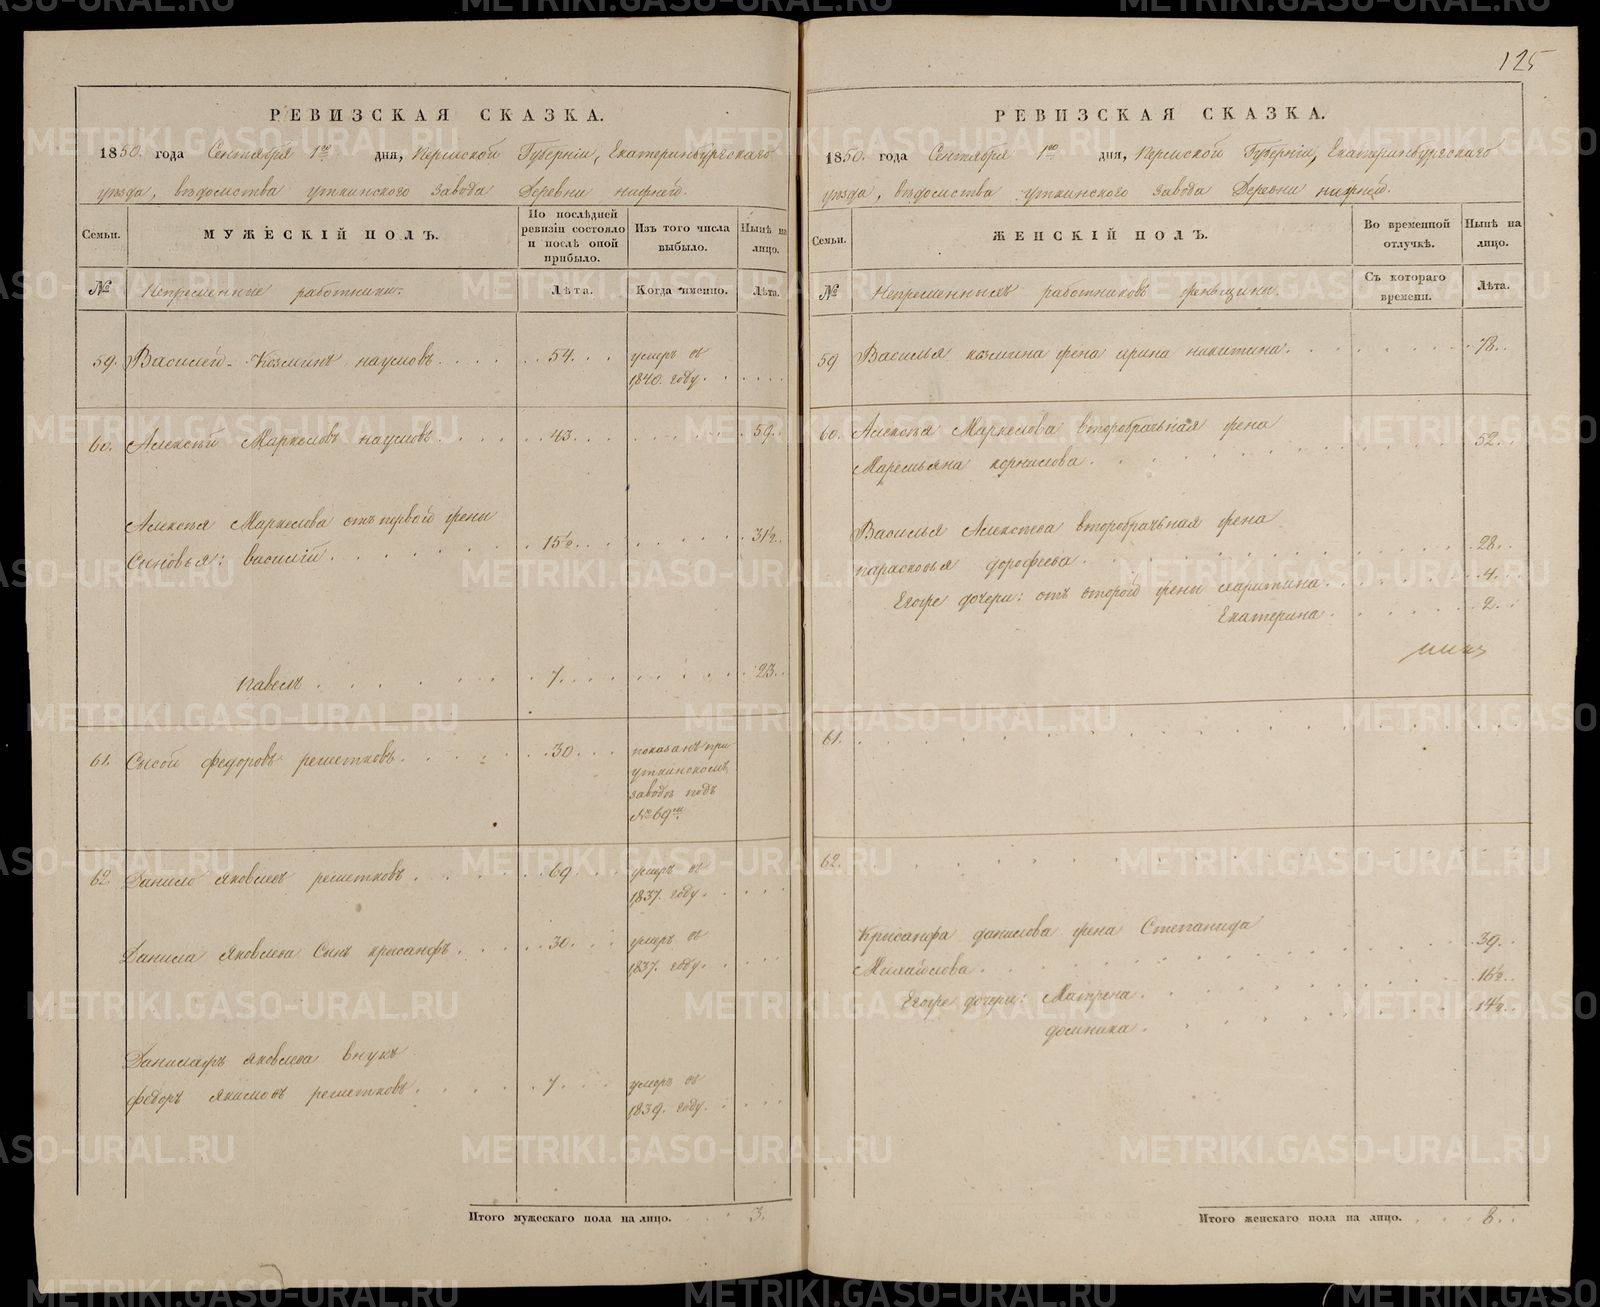 125
РЕВИЗСКАЯ СКАЗКА.
1850. года Сентября 1го дня, Пермской Губернiи, Екатеринбургскаго
уезда, ведомства уткинского завода Деревни нижней.
Семьи.
МУЖЕСКIЙ ПОЛЪ.
По послѣдней
ревизiи состояло
и послѣ оной
прибыло.
Изъ того числа
выбыло.
Нынѣ на
лицо.
№
Непременные работники.
Лѣта.
Когда именно.
Лѣта.
59. Василей Козминъ наумовъ . . . 54. умеръ въ
1840. году.
60. Алексѣй Маркеловъ наумовъ . . . 43. . . . 59.
Алексѣя Маркелова отъ первой жены
Сыновья: василiй . . . 15½. . . . 31½.
павелъ . . . 7. . . . 23.
61. Сысой федоровъ решетковъ . . . 30. показанъ при
уткинскомъ
заводѣ подъ
№ 69мъ
62 Данило яковлевъ решетковъ . . . 69. умеръ въ
1837. году.
Данила яковлева Сынъ крисанфъ . . . 30. умеръ въ
1837. году.
яковлева внукъ
федоръ якимовъ решетковъ . . . 7. умеръ въ
1839. году.
Итого мужескаго пола на лицо. . . . 3.
РЕВИЗСКАЯ СКАЗКА.
1850. года Сентября 1го дня, Пермской Губернiи, Екатеринбургскаго
уезда, ведомства уткинского завода Деревни нижней.
Семьи.
ЖЕНСКIЙ ПОЛЪ.
Во временной
отлучкѣ.
Нынѣ на
лицо.
№
Непременныхъ работниковъ женщины.
Съ котораго
времени.
Лѣта.
59 Василья козмина жена ирина никитина . . . 78.
60. Алексѣя Маркелова второбрачная жена
Маремьяна корнилова . . . 52.
Василья Алексѣева второбрачная жена
парасковья дорофеева . . . 28.
Егоже дочери: отъ второй жены харитина . . . 4.
Екатерина . . . 2.
61.
62.
Крисанфа данилова жена Степанида
Михайлова . . . 39.
Егоже дочери: Матрена . . . 16½.
домника . . . 14½.
Итого женскаго пола на лицо. . . . 8.
METRIKI.GASO-URAL.RU